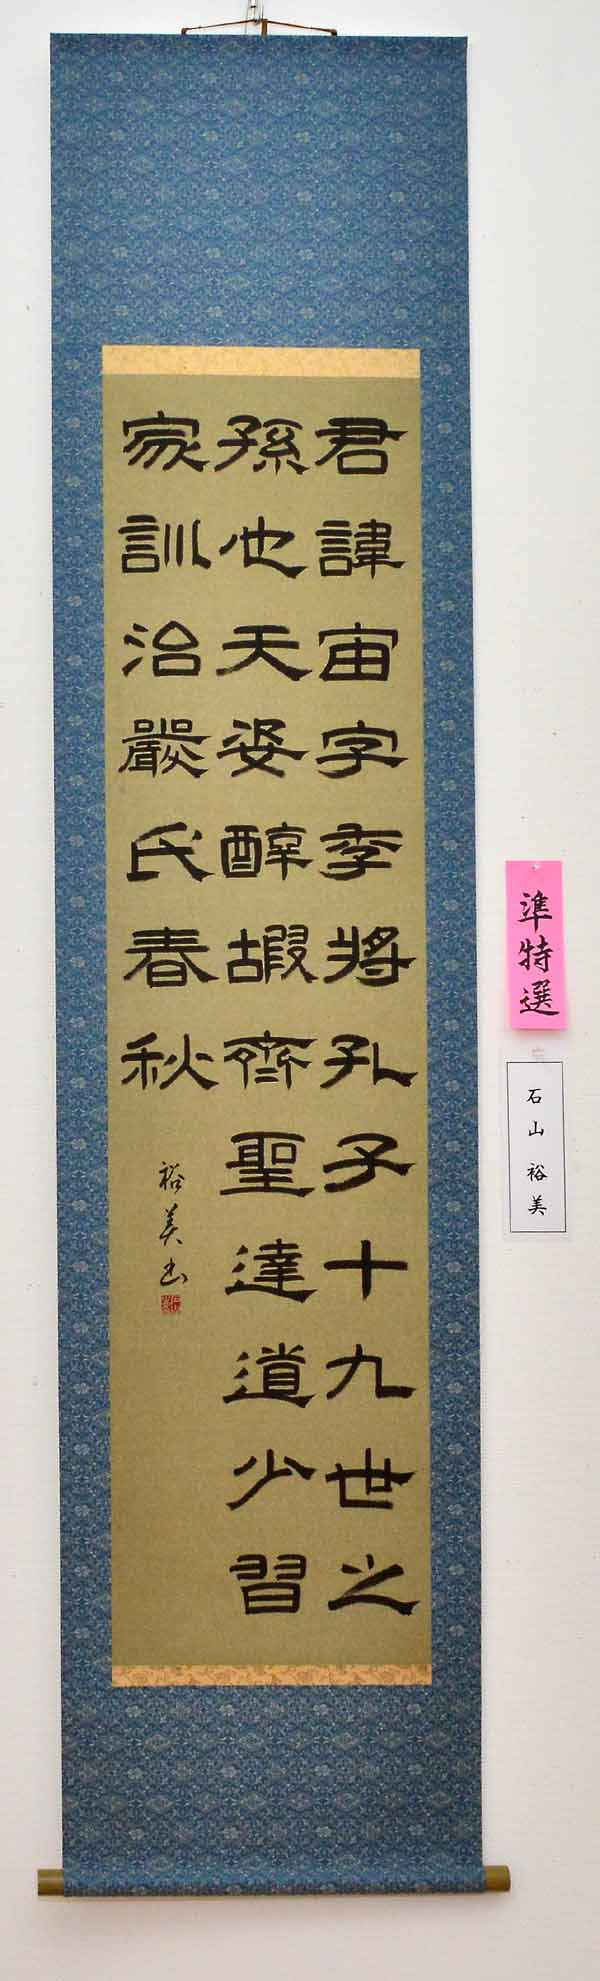 君諱宙字季將孔子十九世之
孫也天姿醇嘏齊聖達道少習
家訓治嚴氏春秋
裕美書
準特選
石山裕美